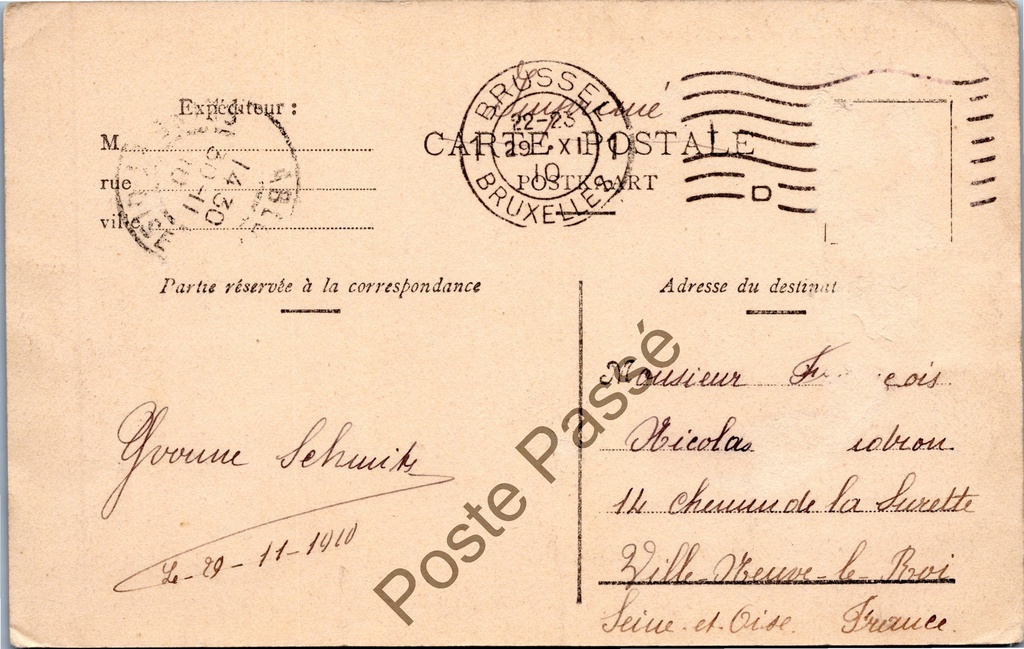 Expéditeur :
M
rue
ville
30-11
14 30
10
Imprimé
BRUSSEL
22-23
29 · XI
10
BRUXELLES
1 1
CARTE POSTALE
POSTKAART
D
Partie réservée à la correspondance
Adresse du destinat
Yvonne Schmitz
Le 29-11-1910
Monsieur F çois
Nicolas
14 chemin de la Surette
Ville-Neuve-le-Roi
Seine-et-Oise. France.
Poste Passé